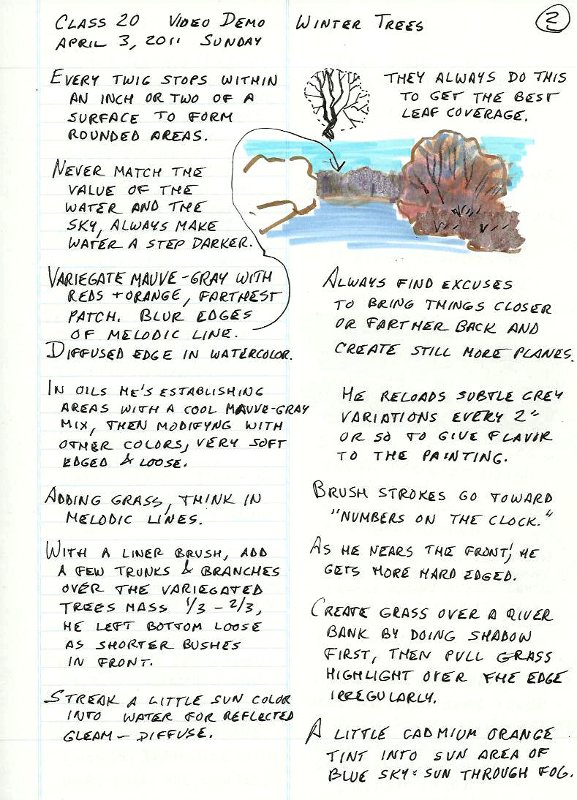 CLASS 20 VIDEO DEMO WINTER TREES
2
APRIL 3, 2011 SUNDAY
EVERY TWIG STOPS WITHIN
AN INCH OR TWO OF A
SURFACE TO FORM
ROUNDED AREAS.
THEY ALWAYS DO THIS
TO GET THE BEST
LEAF COVERAGE.
NEVER MATCH THE
VALUE OF THE
WATER AND THE
SKY, ALWAYS MAKE
WATER A STEP DARKER.
VARIEGATE MAUVE-GRAY WITH
REDS + ORANGE, FARTHEST
PATCH. BLUR EDGES
OF MELODIC LINE.
DIFFUSED EDGE IN WATERCOLOR.
IN OILS HE'S ESTABLISHING
AREAS WITH A COOL MAUVE-GRAY
MIX, THEN MODIFYNG WITH
OTHER COLORS, VERY SOFT
EDGED & LOOSE.
ADDING GRASS, THINK IN
MELODIC LINES.
WITH A LINER BRUSH, ADD
A FEW TRUNKS & BRANCHES
OVER THE VARIEGATED
TREES MASS 1/3 - 2/3,
HE LEFT BOTTOM LOOSE
AS SHORTER BUSHES
IN FRONT.
STREAK A LITTLE SUN COLOR
INTO WATER FOR REFLECTED
GLEAM - DIFFUSE.
ALWAYS FIND EXCUSES
TO BRING THINGS CLOSER
OR FARTHER BACK AND
CREATE STILL MORE PLANES.
HE RELOADS SUBTLE GREY
VARIATIONS EVERY 2"
OR SO TO GIVE FLAVOR
TO THE PAINTING.
BRUSH STROKES GO TOWARD
"NUMBERS ON THE CLOCK."
AS HE NEARS THE FRONT, HE
GETS MORE HARD EDGED.
CREATE GRASS OVER A RIVER
BANK BY DOING SHADOW
FIRST, THEN PULL GRASS
HIGHLIGHT OVER THE EDGE
IRREGULARLY.
A LITTLE CADMIUM ORANGE
TINT INTO SUN AREA OF
BLUE SKY = SUN THROUGH FOG.